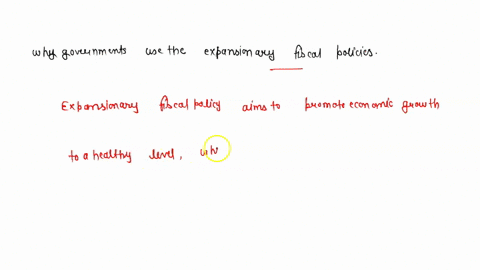 why governments use the expansionary fiscal policies.
Expansionary fiscal policy aims to promote economic growth
to a healthy level, wh